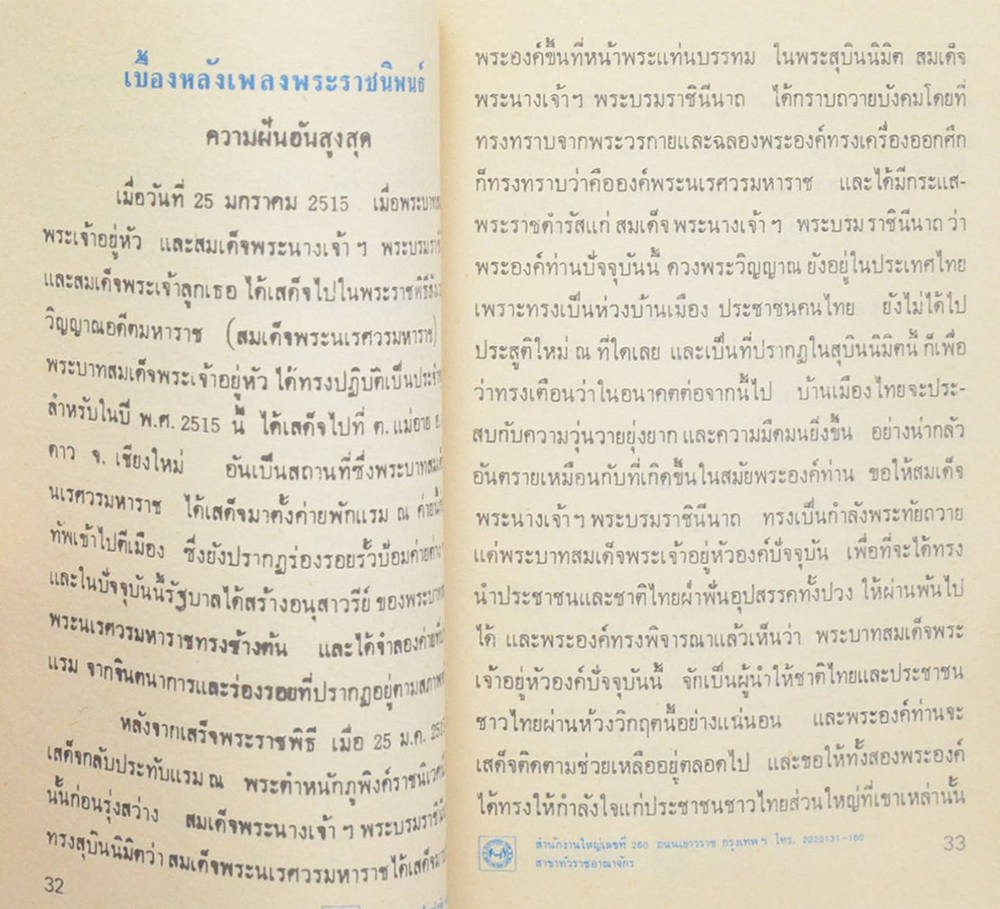 เบื้องหลังเพลงพระราชนิพนธ์
ความฝันอันสูงสุด
เมื่อวันที่ 25 มกราคม 2515 เมื่อพระบาท
พระเจ้าอยู่หัว และสมเด็จพระนางเจ้า ฯ พระบรมรา
และสมเด็จพระเจ้าลูกเธอ ได้เสด็จไปในพระราชพิธี
วิญญาณอดีตมหาราช (สมเด็จพระนเรศวรมหาราช)
พระบาทสมเด็จพระเจ้าอยู่หัว ได้ทรงปฏิบัติเป็นประจำ
สำหรับในปี พ.ศ. 2515 นี้ ได้เสด็จไปที่ ต. แม่อาย อ.
ดาว จ. เชียงใหม่ อันเป็นสถานที่ซึ่งพระบาทสมเด็
นเรศวรมหาราช ได้เสด็จมาตั้งค่ายพักแรม ณ ค่าย
ทัพเข้าไปตีเมือง ซึ่งยังปรากฏร่องรอยรั้วป้อมค่าย
และในปัจจุบันนี้รัฐบาลได้สร้างอนุสาวรีย์ ของพระบาท
พระนเรศวรมหาราชทรงช้างต้น และได้จำลองค่าย
แรม จากจินตนาการและร่องรอยที่ปรากฏอยู่ตามสภาพ
หลังจากเสร็จพระราชพิธี เมื่อ 25 ม.ค. 251
เสด็จกลับประทับแรม ณ พระตำหนักภูพิงค์ราชนิเวศน์
นั้นก่อนรุ่งสว่าง สมเด็จพระนางเจ้า ฯ พระบรมราชินี
ทรงสุบินนิมิตว่า สมเด็จพระนเรศวรมหาราชได้เสด็จมา
32
พระองค์ขึ้นที่หน้าพระแท่นบรรทม ในพระสุบินนิมิต สมเด็จ
พระนางเจ้าฯ พระบรมราชินีนาถ ได้กราบถวายบังคมโดยที่
ทรงทราบจากพระวรกายและฉลองพระองค์ทรงเครื่องออกศึก
ก็ทรงทราบว่าคือองค์พระนเรศวรมหาราช และได้มีกระแส-
พระราชดำรัสแก่ สมเด็จ พระนางเจ้า ฯ พระบรม ราชินีนาถ ว่า
พระองค์ท่านปัจจุบันนี้ ดวงพระวิญญาณ ยังอยู่ในประเทศไทย
เพราะทรงเป็นห่วงบ้านเมือง ประชาชนคนไทย ยังไม่ได้ไป
ประสูติใหม่ ณ ที่ใดเลย และเป็นที่ปรากฏในสุบินนิมิตนี้ ก็เพื่อ
ว่าทรงเตือนว่าในอนาคตต่อจากนี้ไป บ้านเมือง ไทยจะประ-
สบกับความวุ่นวายยุ่งยาก และความมืดมนยิ่งขึ้น อย่างน่ากลัว
อันตรายเหมือนกับที่เกิดขึ้นในสมัยพระองค์ท่าน ขอให้สมเด็จ
พระนางเจ้าฯ พระบรมราชินีนาถ ทรงเป็นกำลังพระทัยถวาย
แด่พระบาทสมเด็จพระเจ้าอยู่หัวองค์ปัจจุบัน เพื่อที่จะได้ทรง
นำประชาชนและชาติไทยฝ่าฟันอุปสรรคทั้งปวง ให้ผ่านพ้นไป
ได้ และพระองค์ทรงพิจารณาแล้วเห็นว่า พระบาทสมเด็จพระ
เจ้าอยู่หัวองค์ปัจจุบันนี้ จักเป็นผู้นำให้ชาติไทยและประชาชน
ชาวไทยผ่านห้วงวิกฤตนี้อย่างแน่นอน และพระองค์ท่านจะ
เสด็จติดตามช่วยเหลืออยู่ตลอดไป และขอให้ทั้งสองพระองค์
ได้ทรงให้กำลังใจแก่ประชาชนชาวไทยส่วนใหญ่ที่เขาเหล่านั้น
สำนักงานใหญ่เลขที่ 260 ถนนเยาวราช กรุงเทพฯ โทร. 2220131-160
สาขาทั่วราชอาณาจักร
33